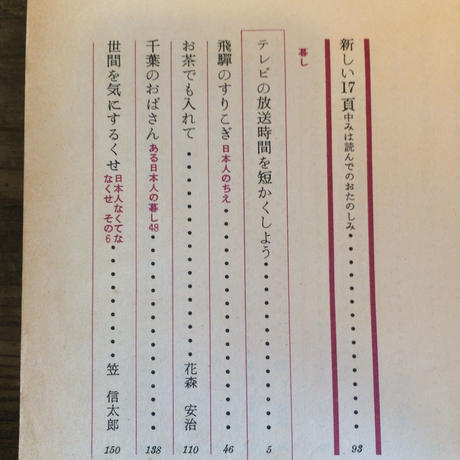 新しい17頁 中みは読んでのおたのしみ・・・・・・・・・・・ 93
暮し
テレビの放送時間を短かくしよう・・・・・・・・・・ 5
飛騨のすりこぎ 日本人のちえ・・・・・・・・・・・・・ 46
お茶でも入れて・・・・・・・・・・・ 花森 安治 110
千葉のおばさん ある日本人の暮し48・・・・・・・・・・・・ 138
世間を気にするくせ 日本人なくてななくせ その6・・・・・・ 笠 信太郎 150